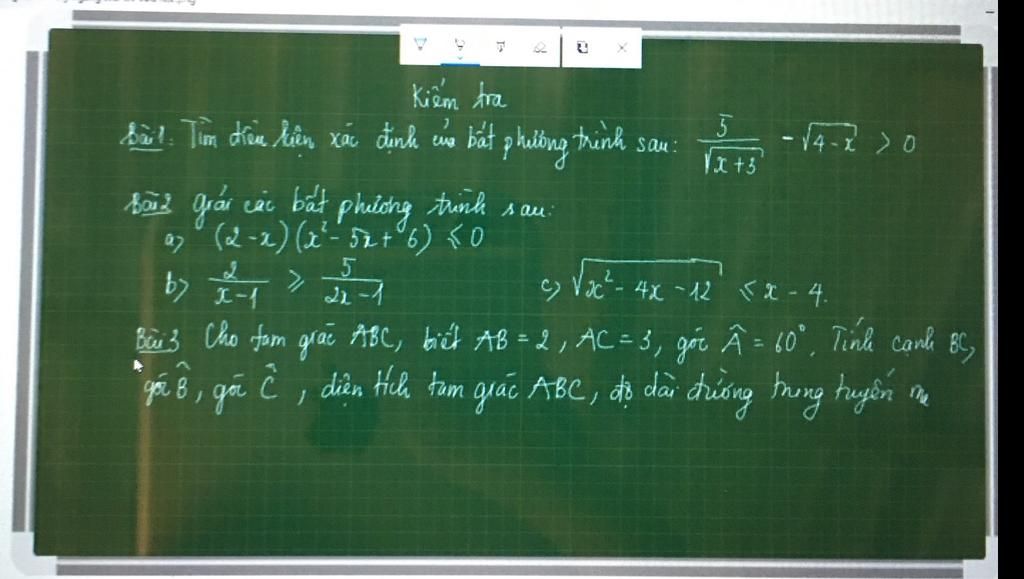 Kiểm tra
Bài 1: Tìm điều kiện xác định của bất phương trình sau: 5/√(x+3) - √(4-x) > 0
Bài 2 Giải các bất phương trình sau:
a) (2-x)(x²-5x+6) ≤ 0
b) 2/(x-1) ≥ 5/(2x-1) c) √(x²-4x-12) ≤ x-4.
Bài 3 Cho tam giác ABC, biết AB = 2, AC = 3, góc Â = 60°. Tính cạnh BC,
góc B̂, góc Ĉ, diện tích tam giác ABC, độ dài đường trung tuyến m